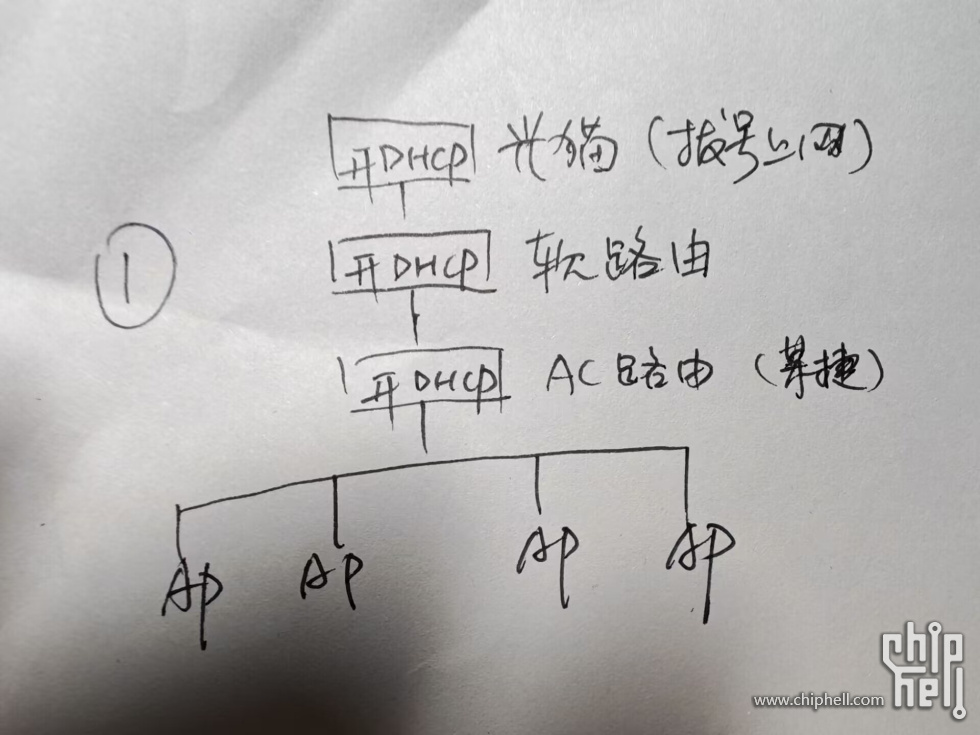 开DHCP 光猫(拨号上网)
①
开DHCP 软路由
开DHCP AC路由(捷)
AP AP AP AP
chip hell
www.chiphell.com